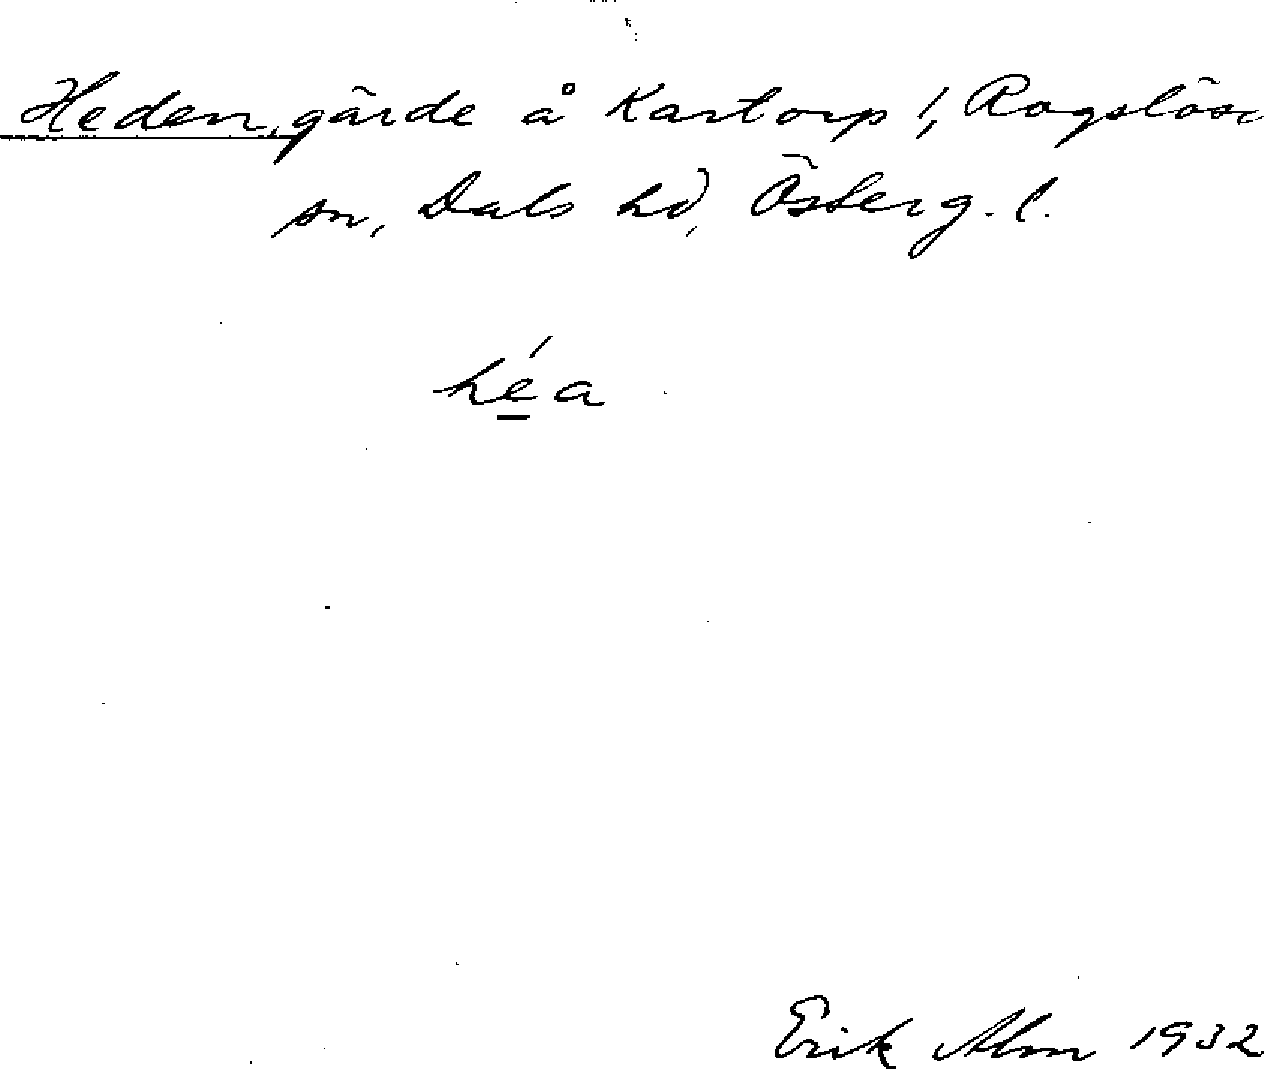 Heden, gärde å Kartorp 1, Rogslösa
sn, Dals hd, Österg. l.
héa
Erik Alm 1932